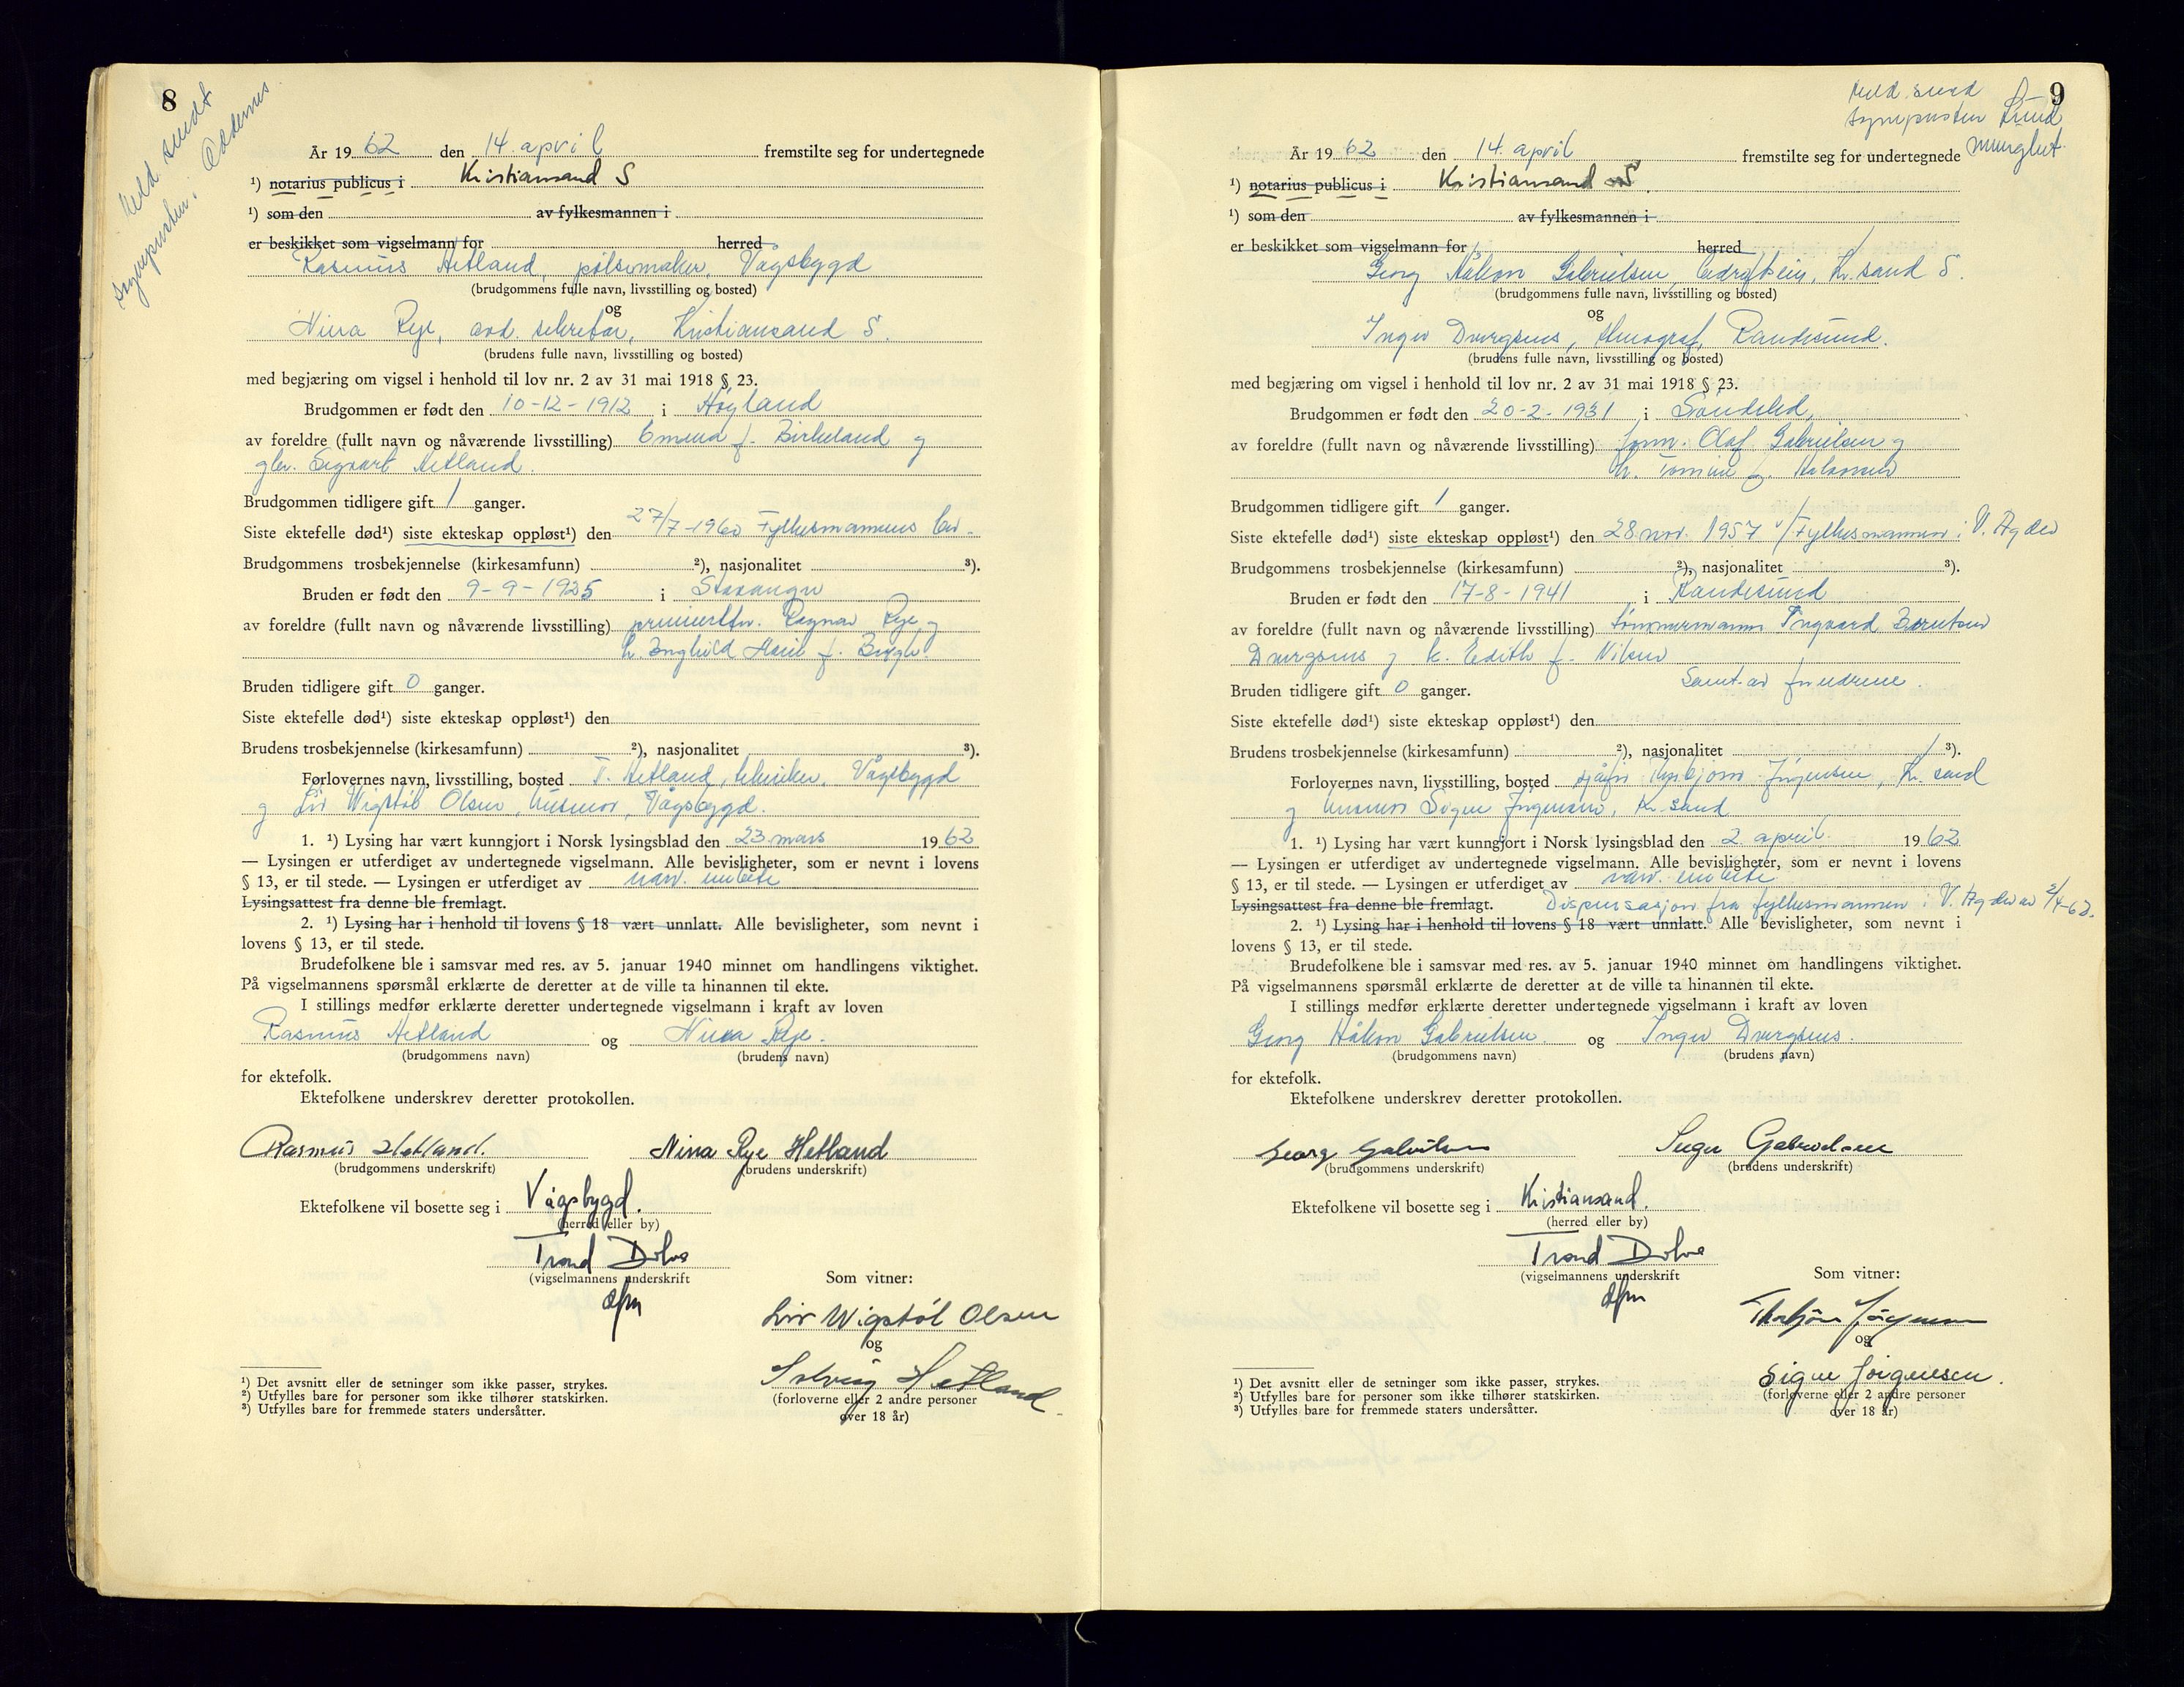 8
Meld. sendt
sogneprsten. Oddernes.
År 19 62 den 14. april fremstilte seg for undertegnede
¹) notarius publicus i Kristiansand S
¹) som den av fylkesmannen i
er beskikket som vigselmann for herred
Rasmus Hetland, pølsemaker, Vågsbygd
(brudgommens fulle navn, livsstilling og bosted)
og
Nina Rye, avd. sekretær, Kristiansand S.
(brudens fulle navn, livsstilling og bosted)
med begjæring om vigsel i henhold til lov nr. 2 av 31 mai 1918 § 23.
Brudgommen er født den 10-12-1912 i Høyland
av foreldre (fullt navn og nåværende livsstilling) Emma f. Birkeland og
gbr. Sigvart Hetland.
Brudgommen tidligere gift 1 ganger.
Siste ektefelle død¹) siste ekteskap oppløst¹) den 27/7-1960 Fylkesmannens bev.
Brudgommens trosbekjennelse (kirkesamfunn) ²), nasjonalitet ³).
Bruden er født den 9-9-1925 i Stavanger
av foreldre (fullt navn og nåværende livsstilling) Ragnar Rye og
h. Borghild Marie f. Bergh.
Bruden tidligere gift 0 ganger.
Siste ektefelle død¹) siste ekteskap oppløst¹) den
Brudens trosbekjennelse (kirkesamfunn) ²), nasjonalitet ³).
Forlovernes navn, livsstilling, bosted T. Hetland, tekniker, Vågsbygd
og Liv Wigstøl Olsen, husmor, Vågsbygd.
1. ¹) Lysing har vært kunngjort i Norsk lysingsblad den 23 mars 19 62
— Lysingen er utferdiget av undertegnede vigselmann. Alle bevisligheter, som er nevnt i lovens
§ 13, er til stede. — Lysingen er utferdiget av nærv. embete
Lysingsattest fra denne ble fremlagt.
2. ¹) Lysing har i henhold til lovens § 18 vært unnlatt. Alle bevisligheter, som nevnt i
lovens § 13, er til stede.
Brudefolkene ble i samsvar med res. av 5. januar 1940 minnet om handlingens viktighet.
På vigselmannens spørsmål erklærte de deretter at de ville ta hinannen til ekte.
I stillings medfør erklærte deretter undertegnede vigselmann i kraft av loven
Rasmus Hetland og Nina Rye.
(brudgommens navn) (brudens navn)
for ektefolk.
Ektefolkene underskrev deretter protokollen.
Rasmus Hetland. Nina Rye Hetland
(brudgommens underskrift) (brudens underskrift)
Ektefolkene vil bosette seg i Vågsbygd.
(herred eller by)
Trond Dolva
(vigselmannens underskrift
dfm
Som vitner:
Liv Wigstøl Olsen
og
Solveig Hetland
(forloverne eller 2 andre personer
over 18 år)
¹) Det avsnitt eller de setninger som ikke passer, strykes.
²) Utfylles bare for personer som ikke tilhører statskirken.
³) Utfylles bare for fremmede staters undersåtter.
9
Meld. send
sogneprsten Lund
menighet
År 19 62 den 14. april fremstilte seg for undertegnede
¹) notarius publicus i Kristiansand S.
¹) som den av fylkesmannen i
er beskikket som vigselmann for herred
Georg Håkon Gabrielsen, Kr.sand S.
(brudgommens fulle navn, livsstilling og bosted)
og
Inger Dvergsnes, stenograf, Randesund.
(brudens fulle navn, livsstilling og bosted)
med begjæring om vigsel i henhold til lov nr. 2 av 31 mai 1918 § 23.
Brudgommen er født den 20-2-1931 i Søndeled,
av foreldre (fullt navn og nåværende livsstilling) Olaf Gabrielsen og
h. Tomine f. Halvorsen
Brudgommen tidligere gift 1 ganger.
Siste ektefelle død¹) siste ekteskap oppløst¹) den 28 nov. 1957 v/Fylkesmannen i V. Agder
Brudgommens trosbekjennelse (kirkesamfunn) ²), nasjonalitet ³).
Bruden er født den 17-8-1941 i Randesund
av foreldre (fullt navn og nåværende livsstilling) tømmermann Ingvard Berntsen
Dvergsnes og h. Edith f. Nilsen
Samt. av foreldrene.
Bruden tidligere gift 0 ganger.
Siste ektefelle død¹) siste ekteskap oppløst¹) den
Brudens trosbekjennelse (kirkesamfunn) ²), nasjonalitet ³).
Forlovernes navn, livsstilling, bosted sjåfør Torbjørn Jørgensen, Kr. sand
og husmor Signe Jørgensen, Kr. sand
1. ¹) Lysing har vært kunngjort i Norsk lysingsblad den 2. april 19 62
— Lysingen er utferdiget av undertegnede vigselmann. Alle bevisligheter, som er nevnt i lovens
§ 13, er til stede. — Lysingen er utferdiget av nærv. embete
Lysingsattest fra denne ble fremlagt. Dispensasjon fra fylkesmannen i V. Agder av 2/4-62.
2. ¹) Lysing har i henhold til lovens § 18 vært unnlatt. Alle bevisligheter, som nevnt i
lovens § 13, er til stede.
Brudefolkene ble i samsvar med res. av 5. januar 1940 minnet om handlingens viktighet.
På vigselmannens spørsmål erklærte de deretter at de ville ta hinannen til ekte.
I stillings medfør erklærte deretter undertegnede vigselmann i kraft av loven
Georg Håkon Gabrielsen. og Inger Dvergsnes.
(brudgommens navn) (brudens navn)
for ektefolk.
Ektefolkene underskrev deretter protokollen.
Georg Gabrielsen Inger Gabrielsen
(brudgommens underskrift) (brudens underskrift)
Ektefolkene vil bosette seg i Kristiansand.
(herred eller by)
Trond Dolva
(vigselmannens underskrift
dfm
Som vitner:
Thorbjørn Jørgensen
og
Signe Jørgensen.
(forloverne eller 2 andre personer
over 18 år)
¹) Det avsnitt eller de setninger som ikke passer, strykes.
²) Utfylles bare for personer som ikke tilhører statskirken.
³) Utfylles bare for fremmede staters undersåtter.